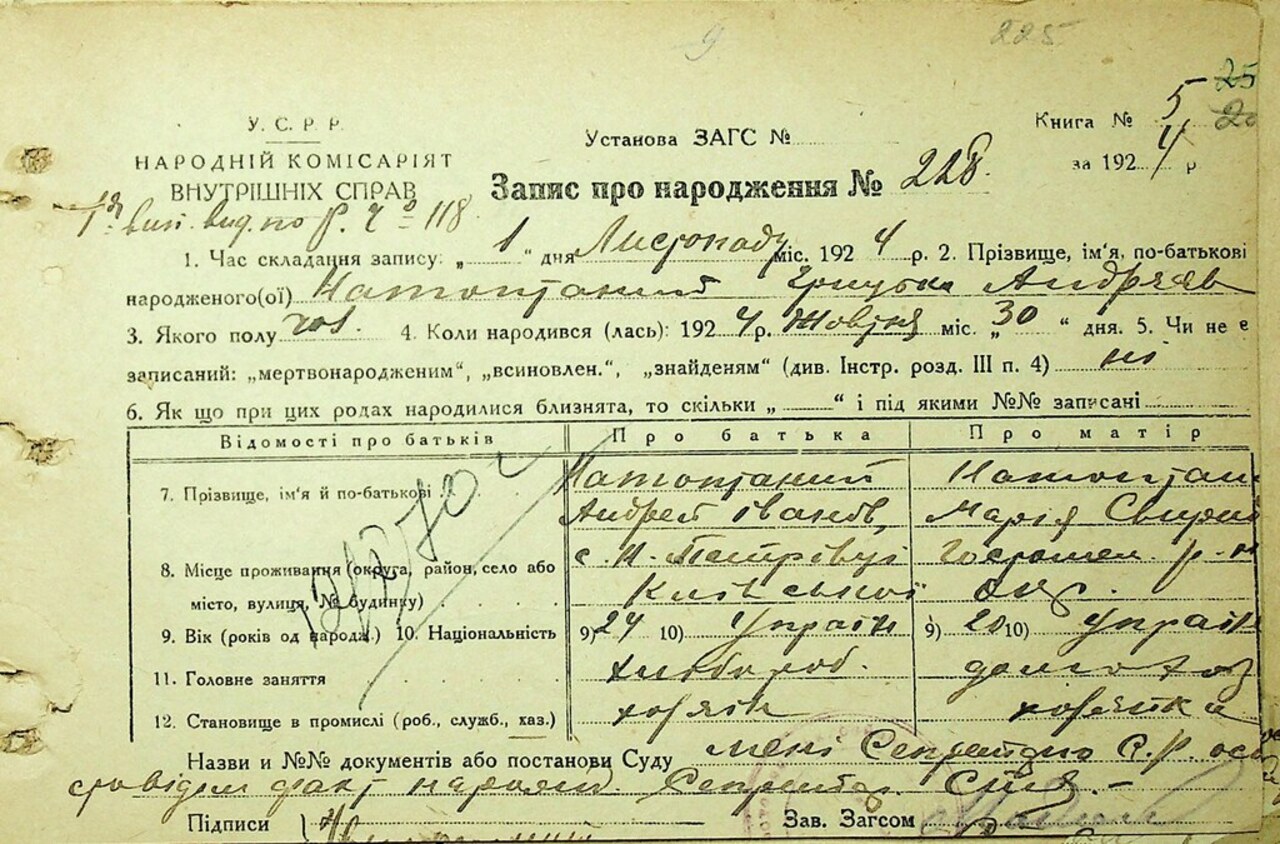 9 225
25
У. С. Р. Р. Книга № 5 20
Установа ЗАГС №
НАРОДНІЙ КОМІСАРІЯТ за 1924 р
ВНУТРІШНІХ СПРАВ Запис про народження № 228.
вид. по р. № 118
1. Час складання запису: „ 1 “ дня Листопаду міс. 1924 р. 2. Прізвище, ім'я, по-батькові
народженого(ої) Натоптаний Грицько Андреєв
3. Якого полу чол. 4. Коли народився (лась): 1924 р. Жовтня міс. „ 30 “ дня. 5. Чи не є
записаний: „мертвонародженим“, „всиновлен.“, „знайденям“ (див. Інстр. розд. III п. 4) ні
6. Як що при цих родах народилися близнята, то скільки „ “ і під якими №№ записані
Відомості про батьків Про батька Про матір
7. Прізвище, ім'я й по-батькові Натоптаний Натоптан
Андрей Іванов, Марія
8. Місце проживання (округа, район, село або с. Н. Петрівці Гостомел. р-н
місто, вулиця, № будинку) Київської окр.
9. Вік (років од народ.) 10. Національність 9) 24 10) Україн 9) 20 10) Україн
11. Головне заняття хлібороб. домохоз
12. Становище в промислі (роб., служб., хаз.) хозяїн хозяйка
Назви и №№ документів або постанови Суду мені Секретдрю С.Р.
факт народж. Секретар.
Підписи Зав. Загсом